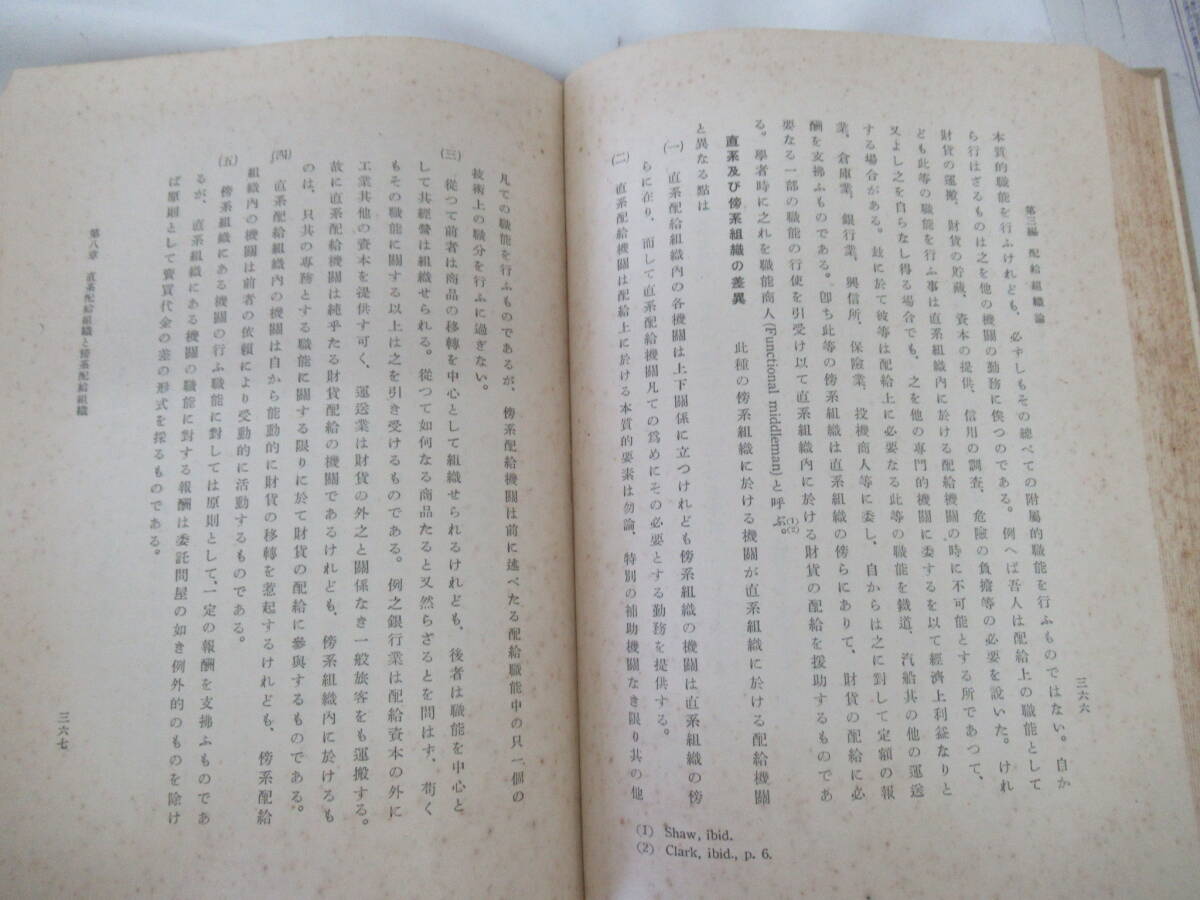 第三編 配給組織論
三六六
本質的職能を行ふけれども、必ずしもその總べての附屬的職能を行ふものではない。自か
ら行はざるものは之を他の機關の勤務に俟つのである。例へば吾人は配給上の職能として
財貨の運搬、財貨の貯藏、資本の提供、信用の調査、危險の負擔等の必要を說いた。けれ
ども此等の職能を行ふ事は直系組織內に於ける配給機關の時に不可能とする所であつて、
又よし之を自らなし得る場合でも、之を他の專門的機關に委するを以て經濟上利益なりと
する場合がある。玆に於て彼等は配給上に必要なる此等の職能を鐵道、汽船其の他の運送
業、倉庫業、銀行業、興信所、保險業、投機商人等に委し、自からは之に對して定額の報
酬を支拂ふものである。卽ち此等の傍系組織は直系組織の傍らにありて、財貨の配給に必
要なる一部の職能の行使を引受け以て直系組織內に於ける財貨の配給を援助するものであ
る。學者時に之れを職能商人(Functional middleman)と呼ぶ。(1)(2)
直系及び傍系組織の差異 此種の傍系組織に於ける機關が直系組織に於ける配給機關
と異なる點は
(一) 直系配給組織內の各機關は上下關係に立つけれども傍系組織の機關は直系組織の傍
らに在り、而して直系配給機關凡ての爲めにその必要とする勤務を提供する。
(二) 直系配給機關は配給上に於ける本質的要素は勿論、特別の補助機關なき限り其の他
(1) Shaw, ibid.
(2) Clark, ibid., p. 6.
凡ての職能を行ふものであるが、傍系配給機關は前に述べたる配給職能中の只一個の
技術上の職分を行ふに過ぎない。
(三) 從つて前者は商品の移轉を中心として組織せられるけれども、後者は職能を中心と
して其經營は組織せられる。從つて如何なる商品たると又然らざるとを問はず、苟く
もその職能に關する以上は之を引き受けるものである。例之銀行業は配給資本の外に
工業其他の資本を提供す可く、運送業は財貨の外之と關係なき一般旅客をも運搬する。
故に直系配給機關は純乎たる財貨配給の機關であるけれども、傍系組織內に於けるも
のは、只其の專務とする職能に關する限りに於て財貨の配給に參與するものである。
(四) 直系配給組織內の機關は自から能動的に財貨の移轉を惹起するけれども、傍系配給
組織內の機關は前者の依賴により受動的に活動するものである。
(五) 傍系組織にある機關の行ふ職能に對しては原則として、一定の報酬を支拂ふものであ
るが、直系組織にある機關の職能に對する報酬は委託問屋の如き例外的のものを除け
ば原則として賣買代金の差の形式を採るものである。
第八章 直系配給組織と傍系配給組織
三六七